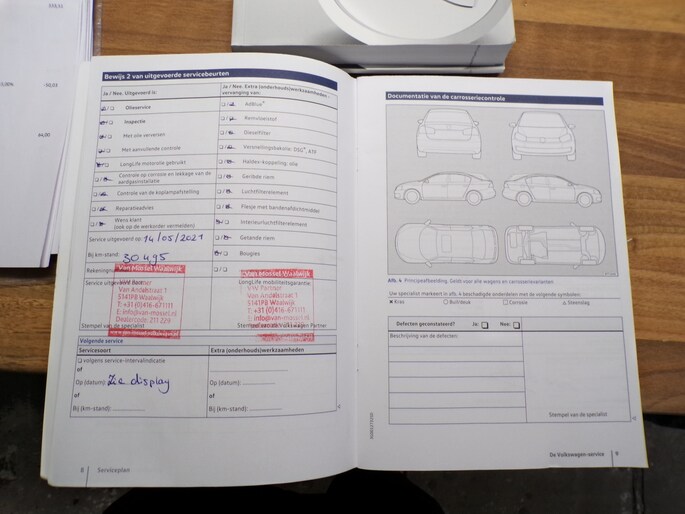 153,51
0,00%
-93,03
94,90
Bewijs 2 van uitgevoerde servicebeurten
Ja / Nee, Uitgevoerd is:
Olieservice
Inspectie
Met olie verversen
Met aanvullende controle
LongLife motorolie gebruikt
Controle op corrosie en lekkage van de aardgasinstallatie
Controle van de koplampafstelling
Reparatieadvies
Wens klant
(ook op de werkorder vermelden)
Service uitgevoerd op: 14/05/2021
Bij km-stand: 30495
Rekening
Service uitgevoerd
Stempel van de specialist
Ja / Nee, Extra (onderhouds)werkzaamheden -
vervanging van:
AdBlue®
Remvloeistof
Dieselfilter
Versnellingsbakolie: DSG®, ATF
Haldex-koppeling: olie
Geribde riem
Luchtfilterelement
Flesje met bandenafdichtmiddel
Interieurluchtfilterelement
Getande riem
Bougies
LongLife mobiliteitsgarantie
Partner
Van Mossel Waalwijk
VW Partner
Van Andelstraat 1
5141PB Waalwijk
T: +31 (0)416-671111
E: info@van-mossel.nl
Dealercode: 211 229
www.van-mossel.nl
Van Mossel Waalwijk
VW Partner
Van Andelstraat 1
5141PB Waalwijk
T: +31 (0)416-671111
Volgende service
Servicesoort
Extra (onderhouds)werkzaamheden
volgens service-intervalindicatie
of
of
Op (datum): Zie display
Op (datum):
of
of
Bij (km-stand):
Bij (km-stand):
8 Serviceplan
Documentatie van de carrosseriecontrole
Afb. 4 Principeafbeelding. Geldt voor alle wagens en carrosserievarianten
Uw specialist markeert in afb. 4 beschadigde onderdelen met de volgende symbolen:
Kras
Buil/deuk
Corrosie
Steenslag
Defecten geconstateerd?
Ja:
Nee:
Beschrijving van de defecten:
Stempel van de specialist
De Volkswagen-service 9